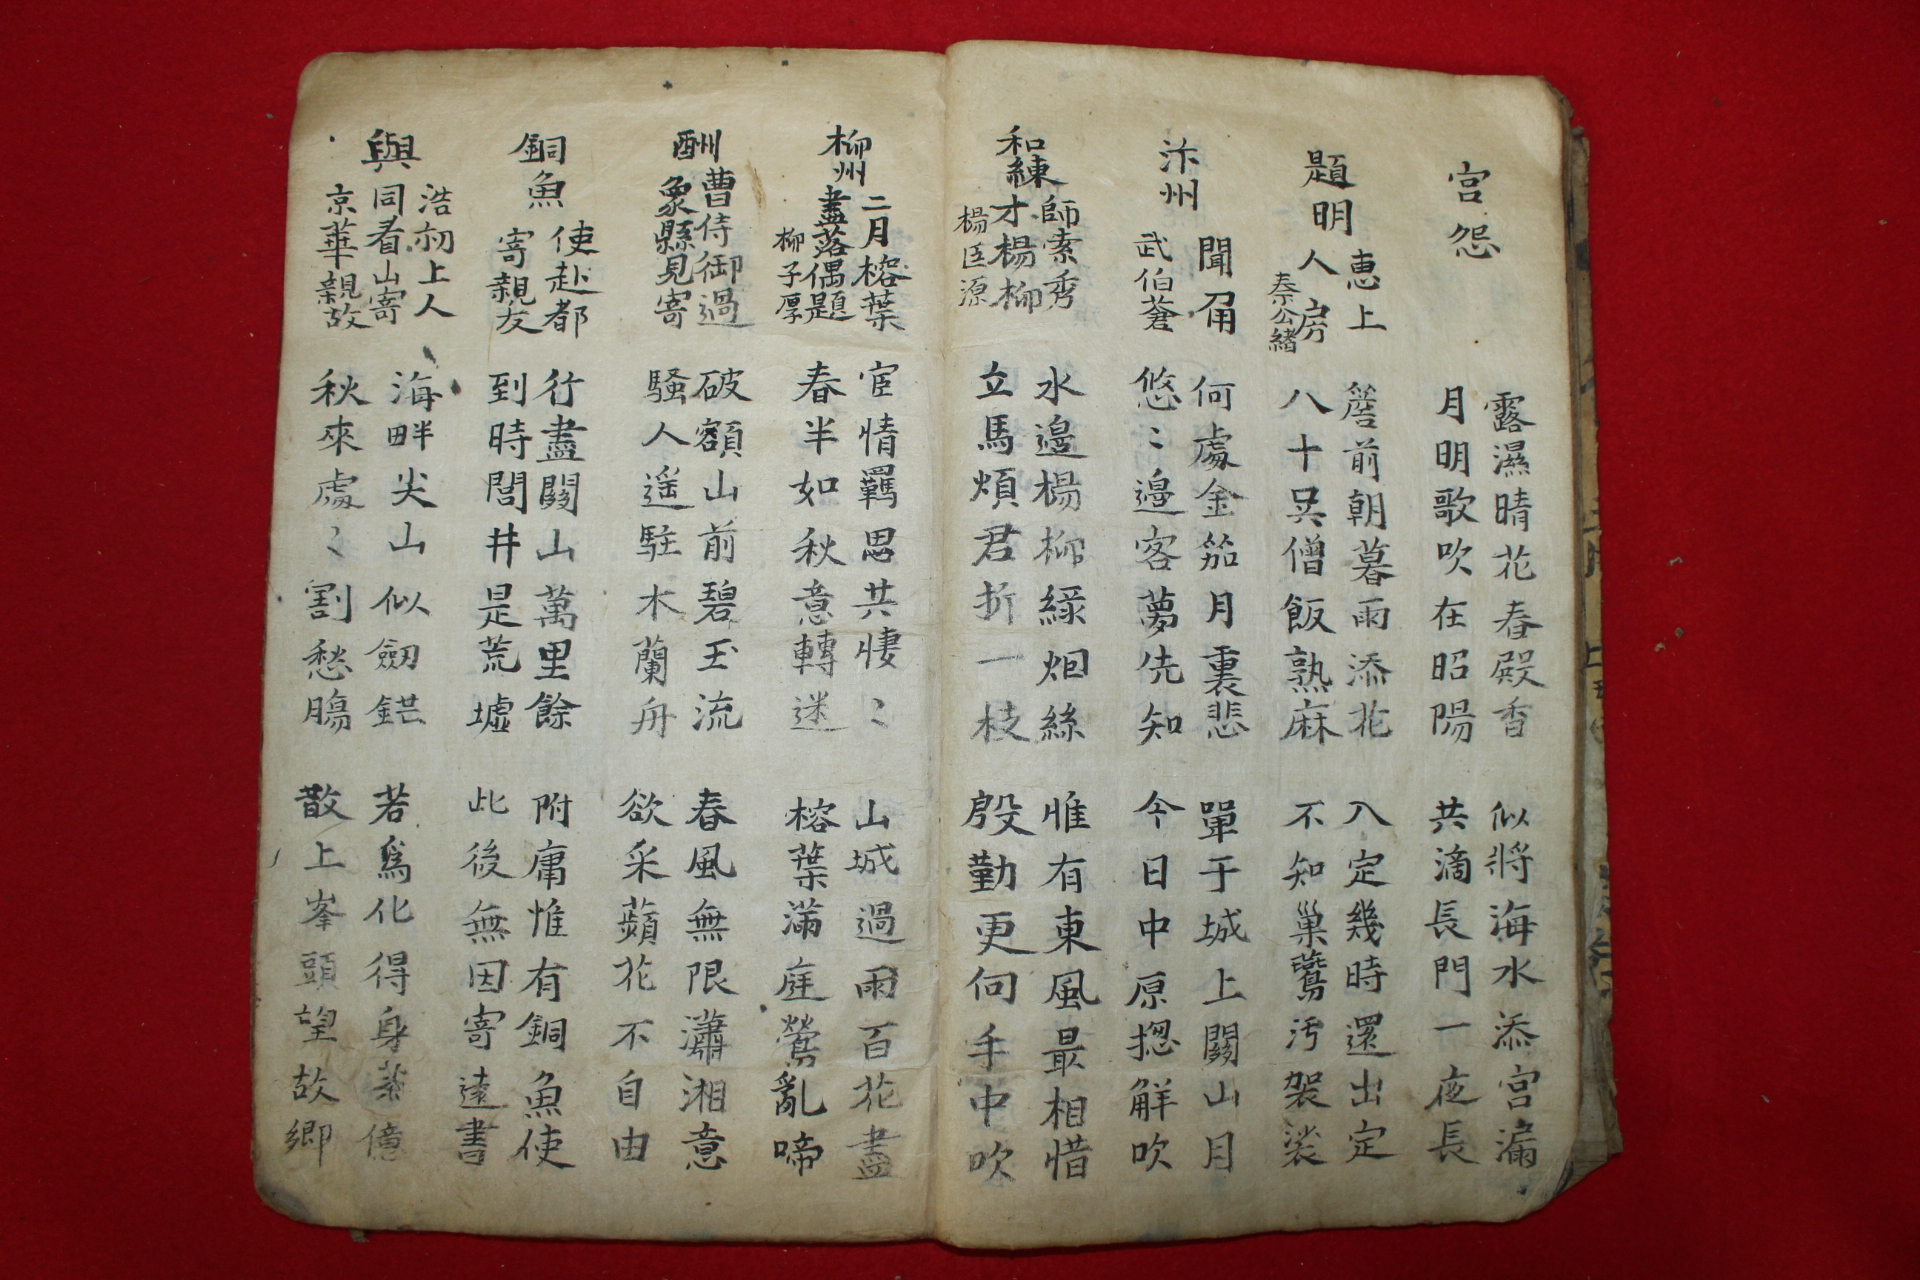 宮怨
露濕晴花春殿香
月明歌吹在昭陽
似將海水添宮漏
共滴長門一夜長
題明惠上人房
秦公緒
簷前朝暮雨添花
八十吳僧飯熟麻
入定幾時還出定
不知巢鷰汚袈裟
汴州聞角
武伯蒼
何處金笳月裏悲
悠〻邊客夢先知
單于城上關山月
今日中原摠解吹
和練師索秀才楊柳
楊臣源
水邊楊柳綠烟絲
立馬煩君折一枝
惟有東風最相惜
殷勤更向手中吹
柳州二月榕葉盡落偶題
柳子厚
宦情羈思共悽〻
春半如秋意轉迷
山城過雨百花盡
榕葉滿庭鶯亂啼
酬曹侍御過象縣見寄
破額山前碧玉流
騷人遥駐木蘭舟
春風無限瀟湘意
欲采蘋花不自由
銅魚使赴都寄親友
行盡關山萬里餘
到時閭井是荒墟
附庸惟有銅魚使
此後無因寄遠書
與浩初上人同看山寄京華親故
海畔尖山似劒鋩
秋來處〻割愁膓
若爲化得身億
散上峯頭望故鄉